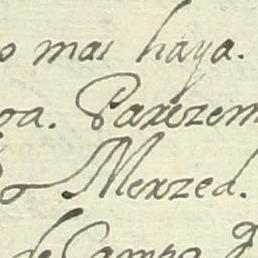 o mas haya.
oa. Parezem
Merzed.
de Campo